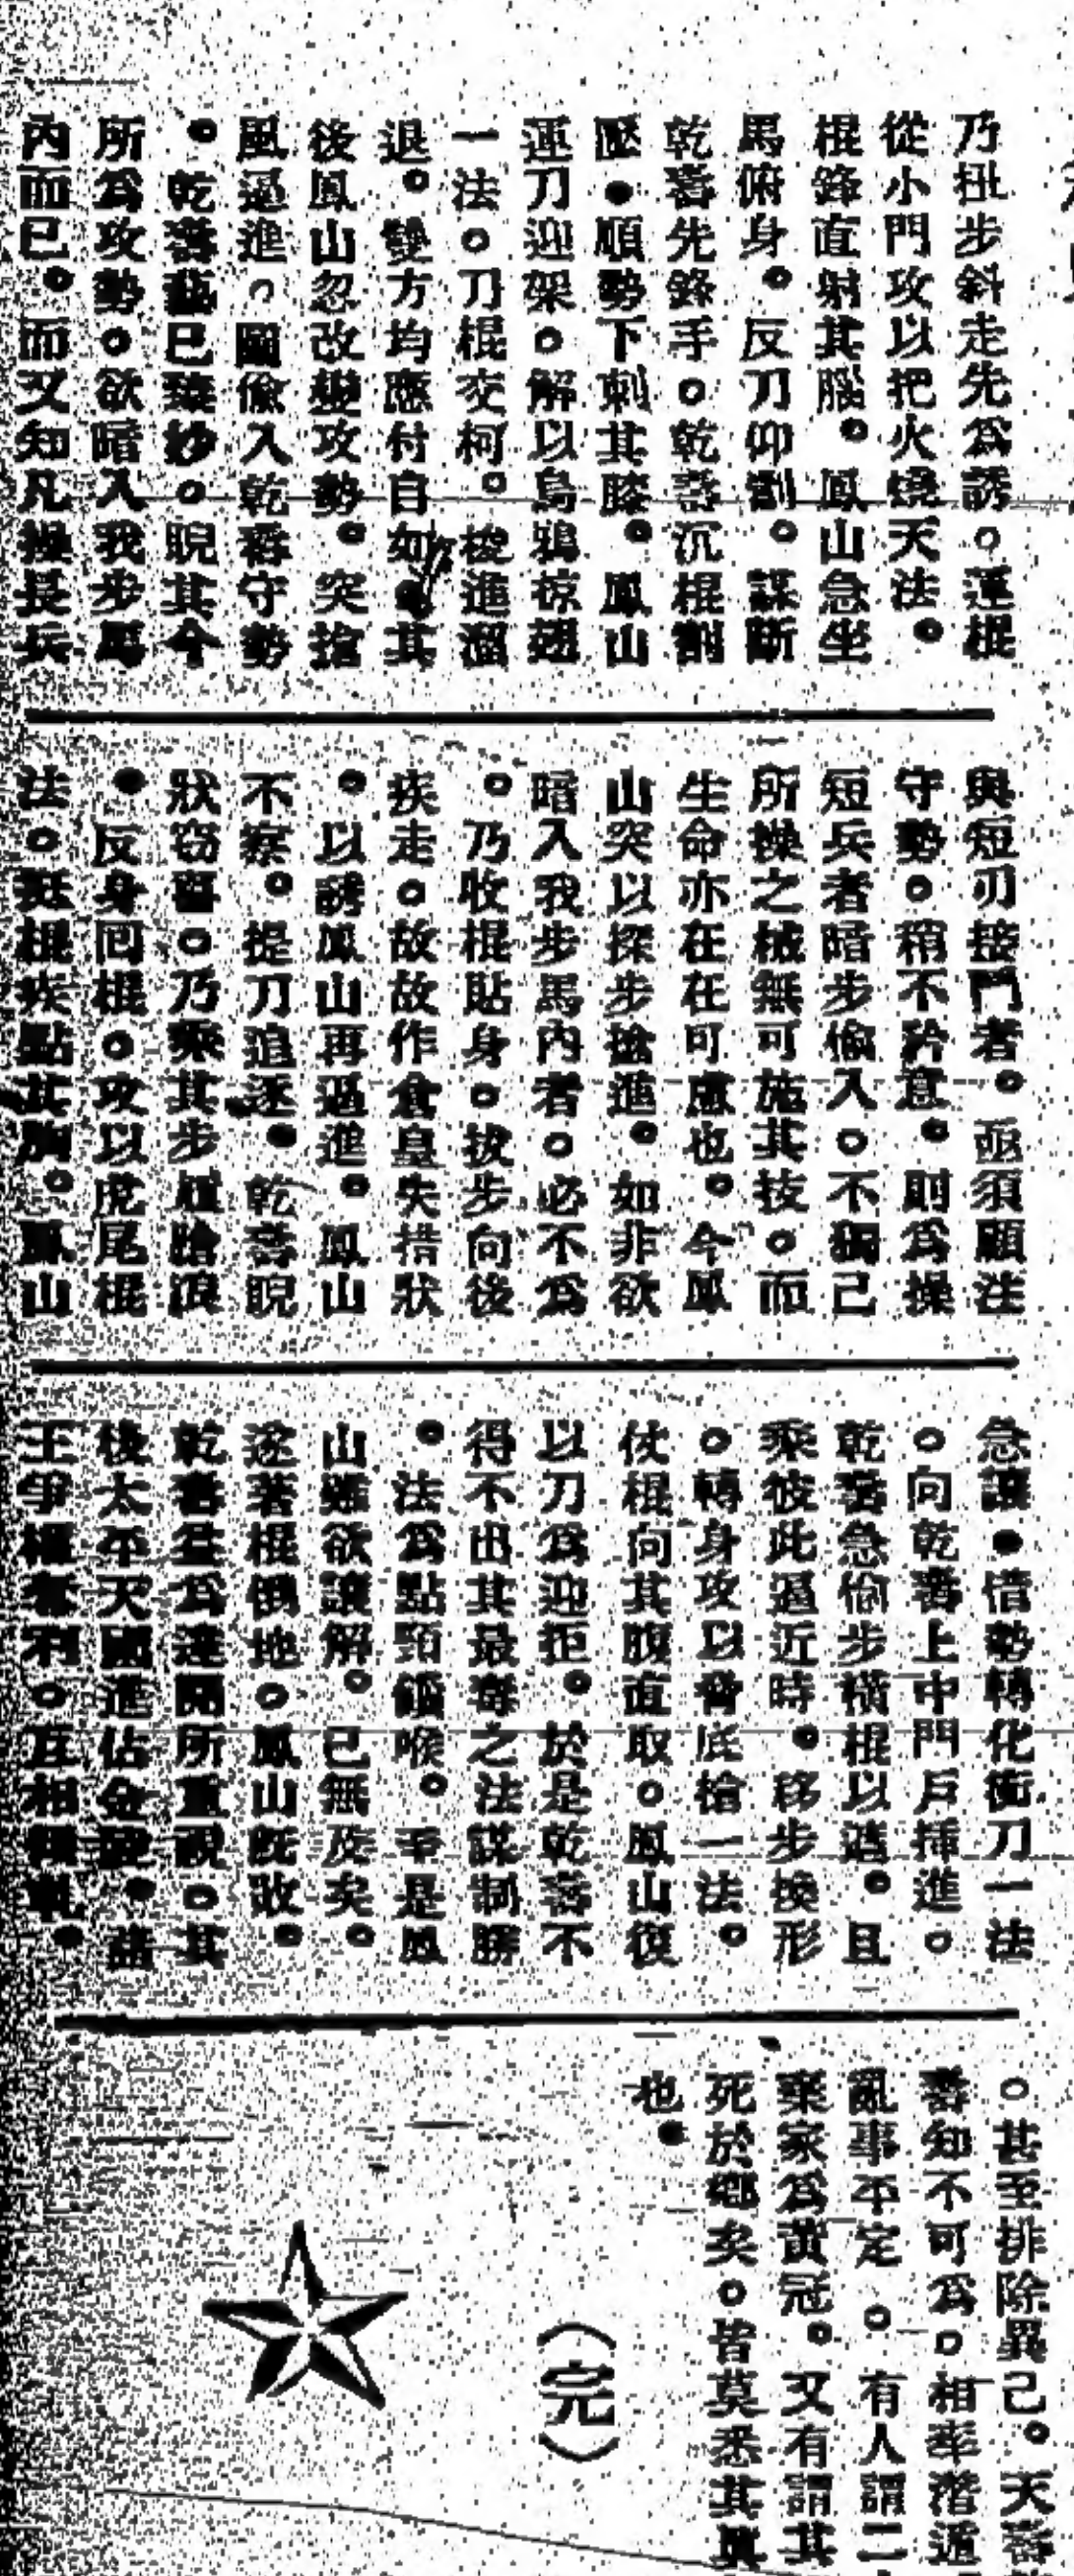 乃扭步斜走先為誘。運棍
從小門攻以把火燒天法。
棍鋒直射其腦。鳳山急坐
馬俯身。反刀仰割。謀斷
乾喜先鋒手。乾喜沉棍割
壓。順勢下刺其膝。鳳山
運刀迎架。解以烏鴉掠翅
一法。刀棍交柯。梭進溜
退。雙方均應付自如。其
後鳳山忽改變攻勢。突搶
風逼進。圖偸入乾喜守勢
。乾喜藝已臻妙。睨其今
所為攻勢。欲暗入我步馬
內而已。而又知凡操長兵
與短刃接鬥者。亟須顧注
守勢。稍不矜意。則為操
短兵者暗步偸入。不獨己
所操之械無可施其技。而
生命亦在在可慮也。今鳳
山突以探步搶進。如非欲
暗入我步馬內者。必不為
。乃收棍貼身。拔步向後
疾走。故故作倉皇失措狀
。以誘鳳山再逼進。鳳山
不察。提刀追逐。乾喜睨
狀竊喜。乃乘其步履蹌踉
。反身回棍。攻以虎尾棍
法。挺棍疾點其胸。鳳山
急讓。借勢轉化衝刀一法
。向乾喜上中門戶揷進。
乾喜急偸步橫棍以遮。且
乘彼此逼近時。移步換形
。轉身攻以脅底槍一法。
仗棍向其腹直取。鳳山復
以刀為迎拒。於是乾喜不
得不出其最毒之法謀制勝
。法為點頭鎖喉。于是鳳
山雖欲讓解。已無及矣。
遂著棍倒地。鳳山旣敗。
乾喜益為達開所重視。其
後太平天國進佔金陵。諸
王爭權奪利。互相猜軋。
。甚至排除異己。天喜
喜知不可為。相率潛遁
亂事平定。有人謂二
棄家為黃冠。又有謂其
死於鄉矣。皆莫悉其眞
也。
（完）